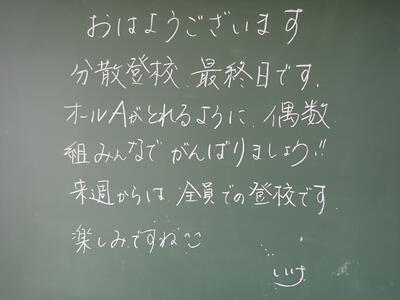 おはようございます
分散登校 最終日です.
オールAがとれるように、偶数
組みんなで がんばりましょう!!
来週からは 全員での登校です
楽しみですね